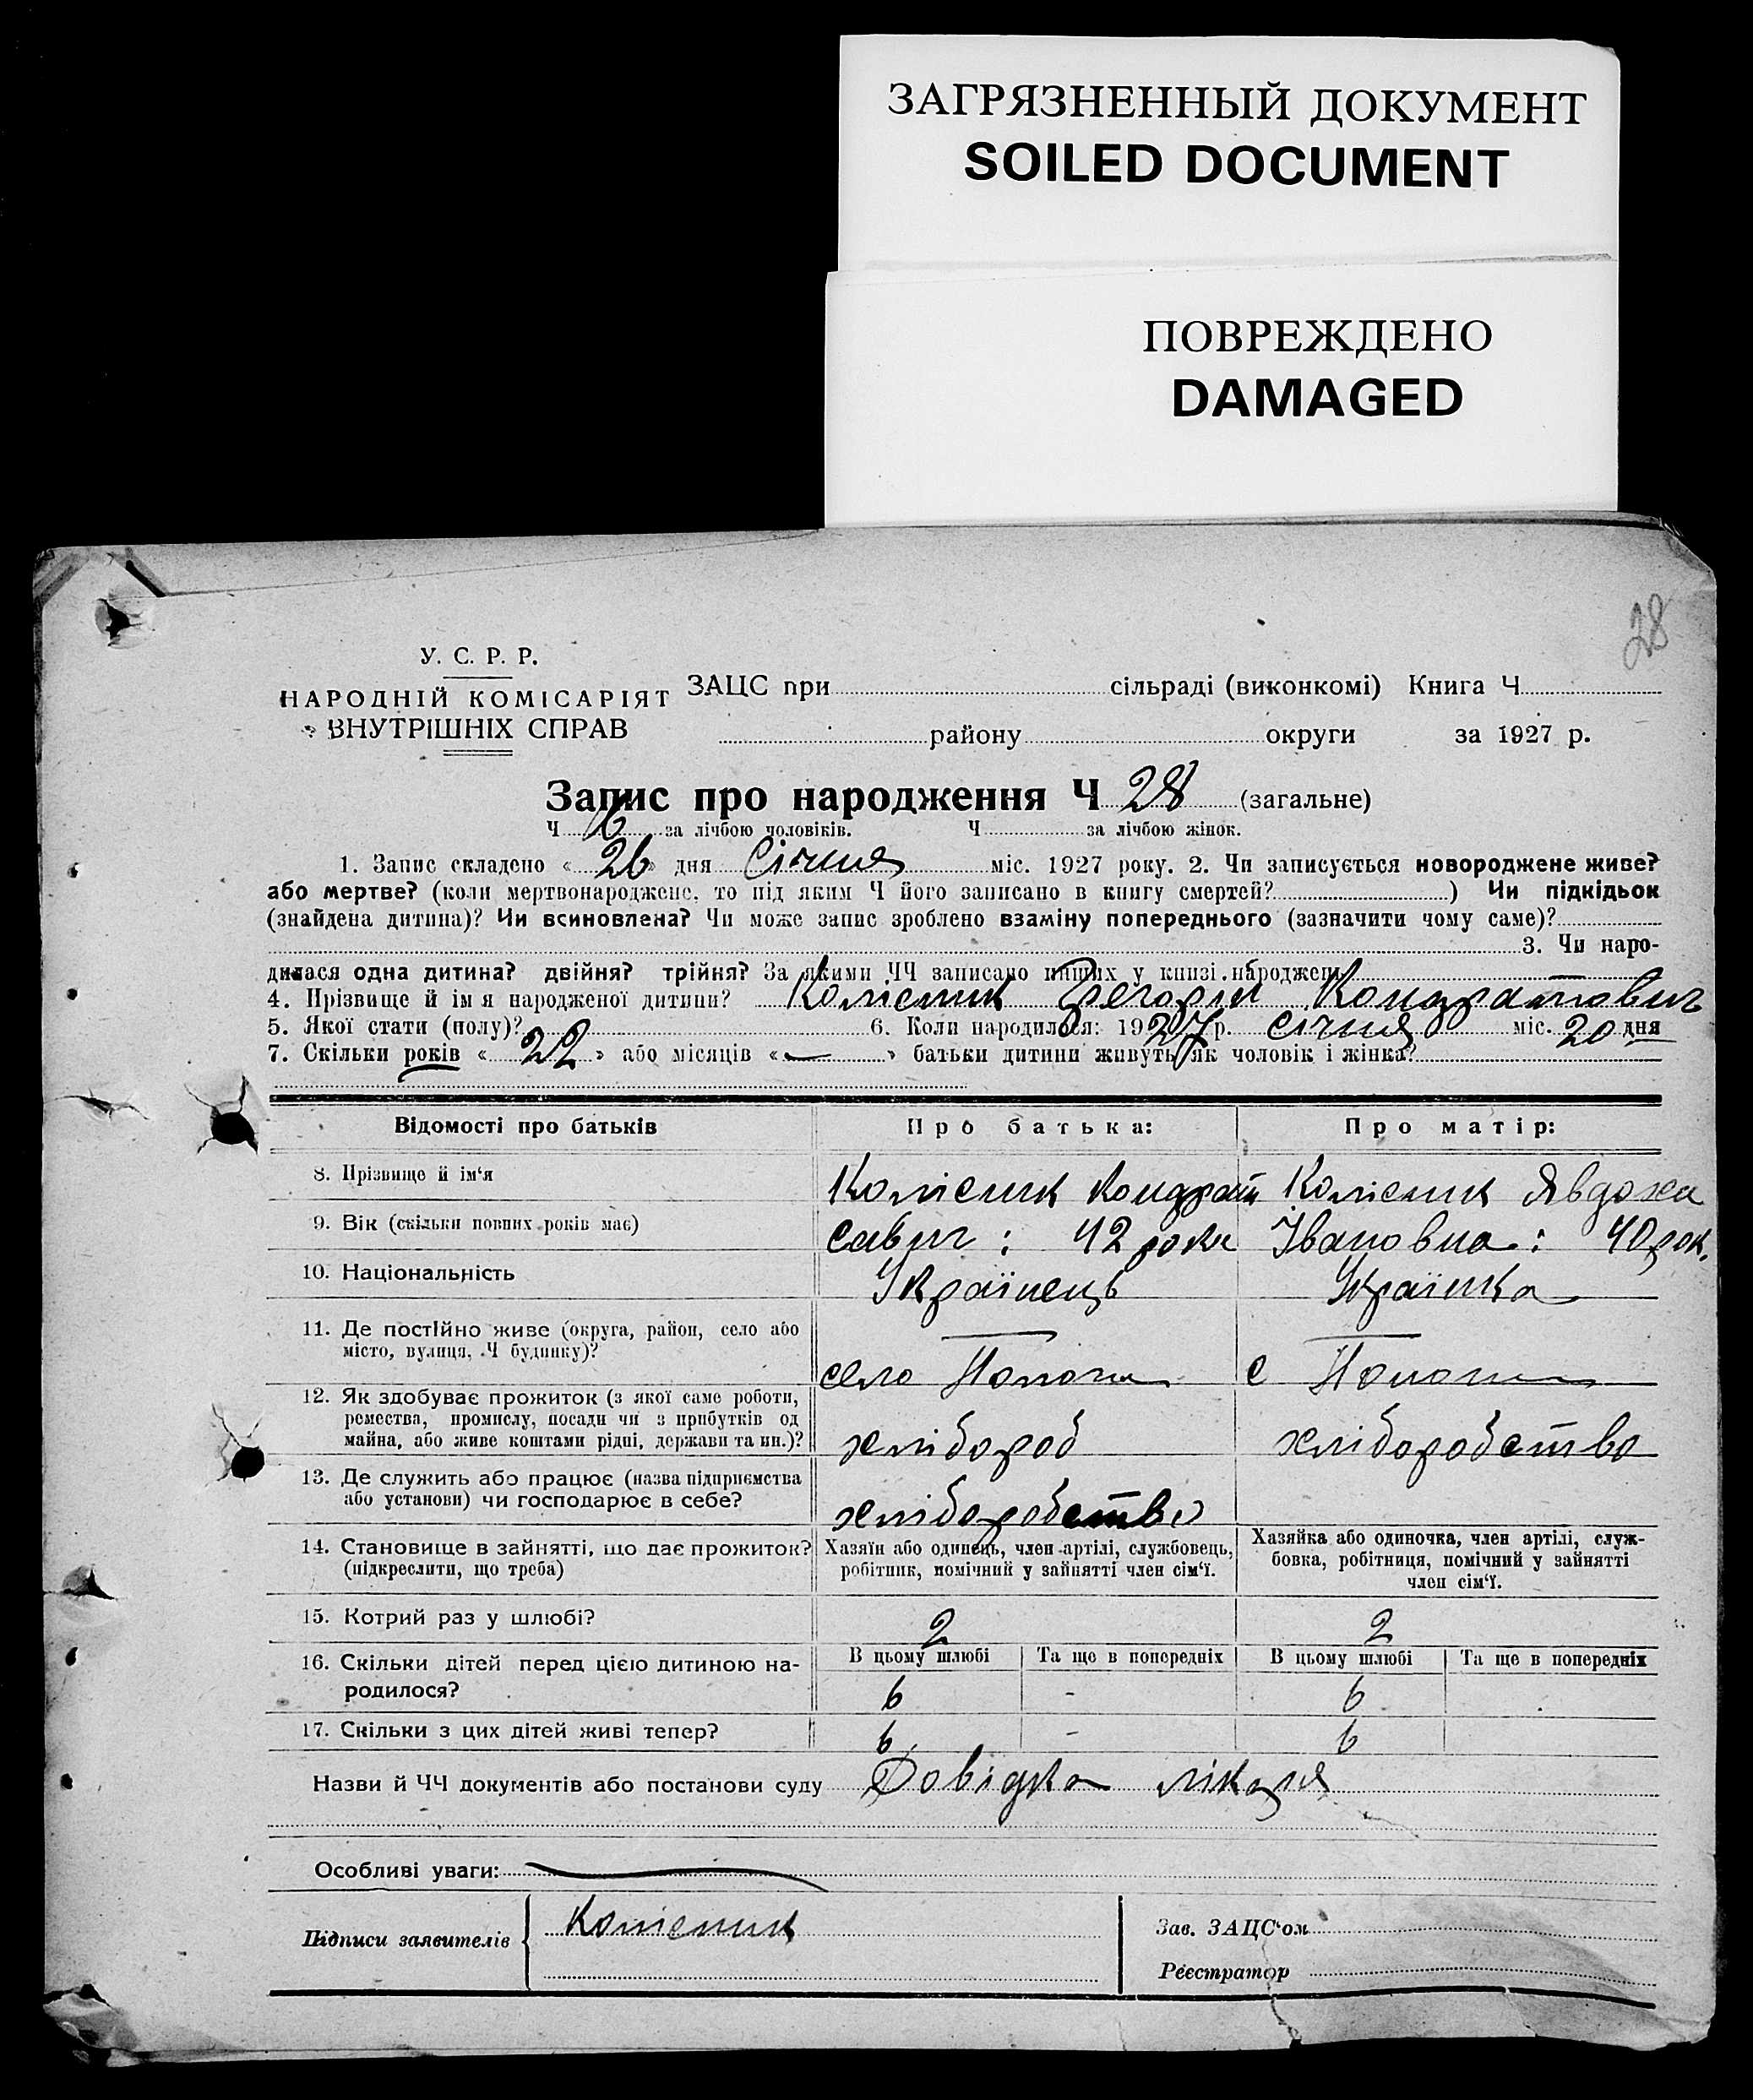 ЗАГРЯЗНЕННЫЙ ДОКУМЕНТ
SOILED DOCUMENT
ПОВРЕЖДЕНО
DAMAGED
28
У. С. Р. Р.
НАРОДНІЙ КОМІСАРІЯТ
ВНУТРІШНІХ СПРАВ
ЗАЦС при сільраді (виконкомі) Книга Ч
району округи за 1927 р.
Запис про народження Ч 28 (загальне)
Ч 16 за лічбою чоловіків. Ч за лічбою жінок.
1. Запис складено « 26 » дня Січня міс. 1927 року. 2. Чи записується новороджене живе?
або мертве? (коли мертвонароджене, то під яким Ч його записано в книгу смертей? ) Чи підкідьок
(знайдена дитина)? Чи всиновлена? Чи може запис зроблено взаміну попереднього (зазначити чому саме)?
3. Чи наро-
дилася одна дитина? двійня? трійня? За якими ЧЧ записано інших у книзі народжень
4. Прізвище й ім я народженої дитини? Колісник Грегорій Кондратович
5. Якої стати (полу)? 6. Коли народилося: 1927 р. січня міс. 20 дня
7. Скільки років « 22 » або місяців « — » батьки дитини живуть як чоловік і жінка?
Відомості про батьків
Про батька:
Про матір:
8. Прізвище й ім‘я
Колісник Кондрат
Колісник Явдоха
9. Вік (скільки повних років має)
Савич : 42 роки
Івановна : 40 рок.
10. Національність
Українець
Українка
11. Де постійно живе (округа, район, село або
місто, вулиця, Ч будинку)?
село
с
12. Як здобуває прожиток (з якої саме роботи,
ремества, промислу, посади чи з прибутків од
майна, або живе коштами рідні, держави та ин.)?
хлібороб
хліборобство
13. Де служить або працює (назва підприємства
або установи) чи господарює в себе?
хліборобство
14. Становище в зайнятті, що дає прожиток?
(підкреслити, що треба)
Хазяїн або одинець, член артілі, службовець,
робітник, помічний у зайнятті член сім‘ї.
Хазяйка або одиночка, член артілі, служ-
бовка, робітниця, помічний у зайнятті
член сім‘ї.
15. Котрий раз у шлюбі?
2
2
В цьому шлюбі Та ще в попередніх В цьому шлюбі Та ще в попередніх
16. Скільки дітей перед цією дитиною на-
родилося?
6 - 6
17. Скільки з цих дітей живі тепер?
6 - 6
Назви й ЧЧ документів або постанови суду Довідка лікаря
Особливі уваги:
Підписи заявителів
Колісник
Зав. ЗАЦС‘ом
Реєстратор